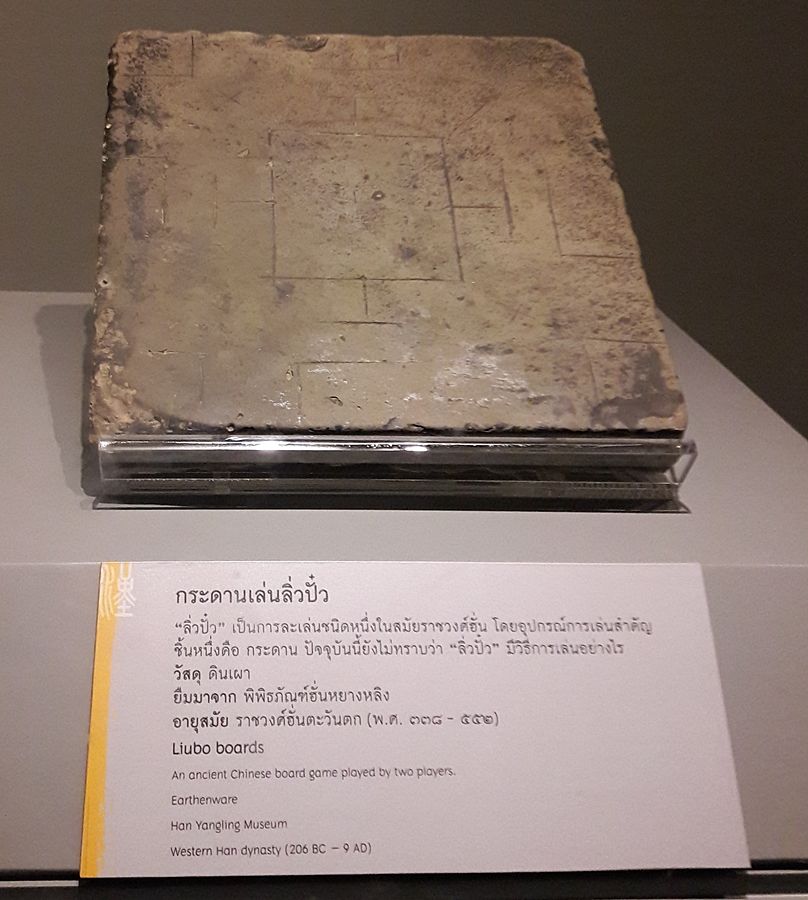 漢
กระดานเล่นลิ่วปั๋ว
“ลิ่วปั๋ว” เป็นการละเล่นชนิดหนึ่งในสมัยราชวงศ์ฮั่น โดยอุปกรณ์การเล่นสำคัญ
ชิ้นหนึ่งคือ กระดาน ปัจจุบันนี้ยังไม่ทราบว่า “ลิ่วปั๋ว” มีวิธีการเล่นอย่างไร
วัสดุ ดินเผา
ยืมมาจาก พิพิธภัณฑ์ฮั่นหยางหลิง
อายุสมัย ราชวงศ์ฮั่นตะวันตก (พ.ศ. ๓๓๘ - ๕๕๒)
Liubo boards
An ancient Chinese board game played by two players.
Earthenware
Han Yangling Museum
Western Han dynasty (206 BC – 9 AD)